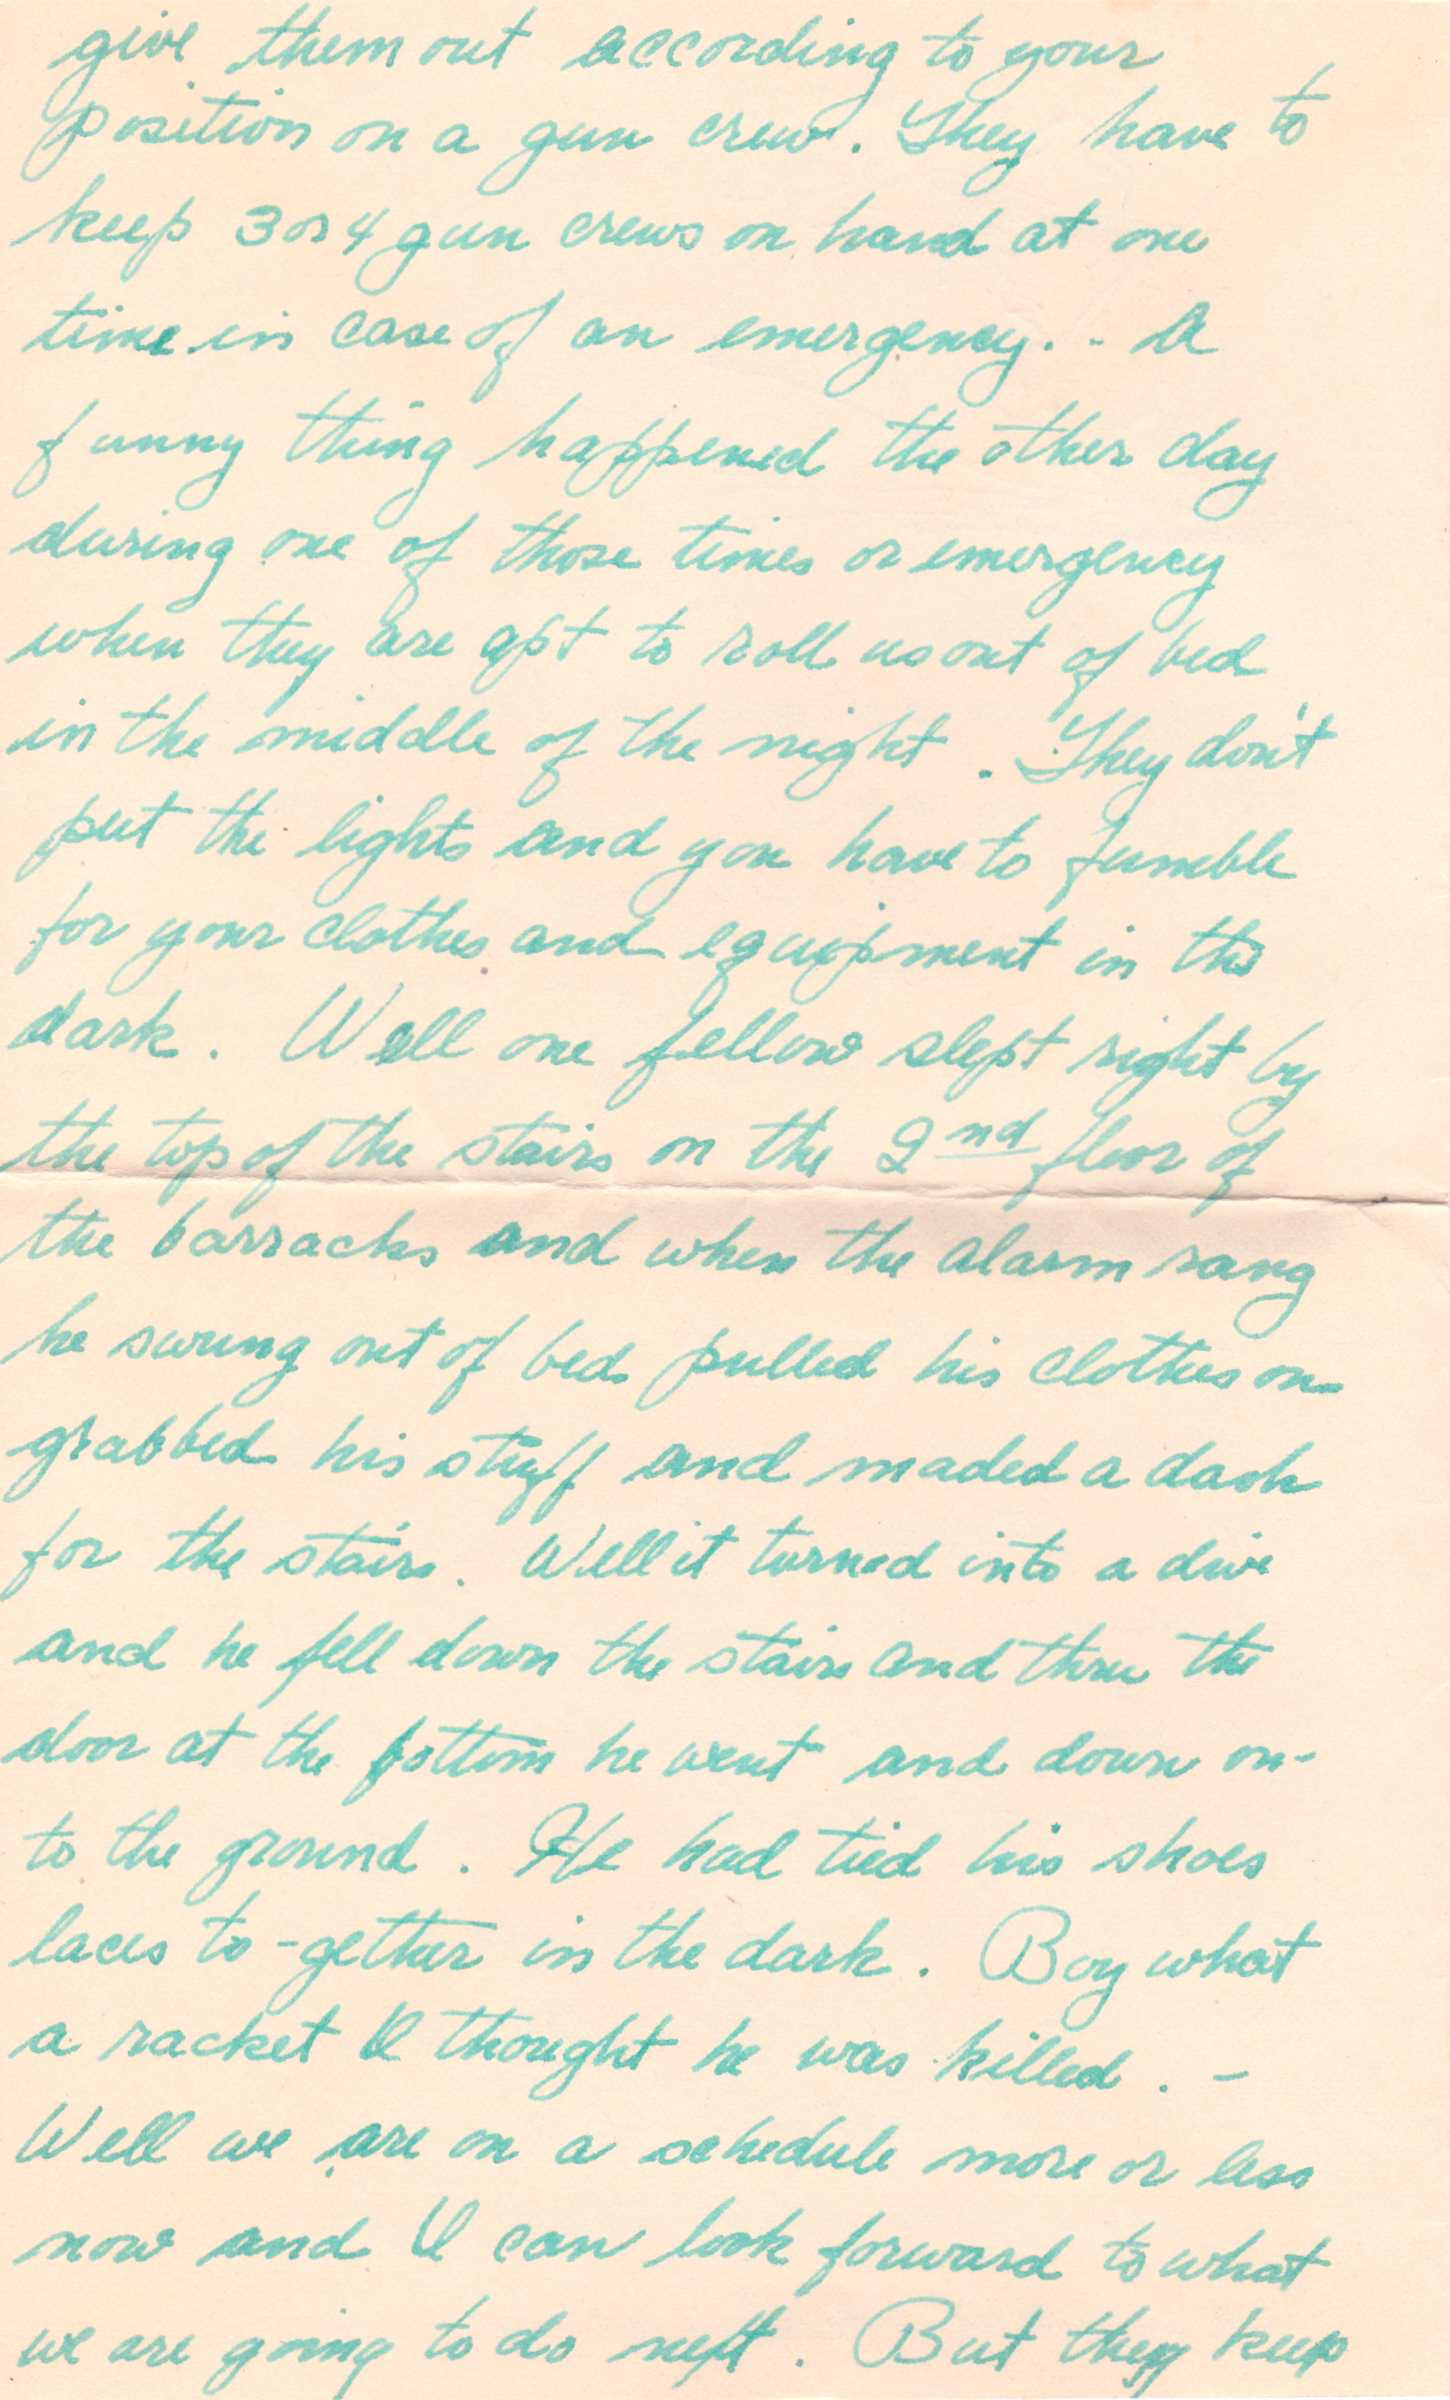 give them out according to your
position on a gun crew. They have to
keep 3 or 4 gun crews on hand at one
time in case of an emergency. - A
funny thing happened the other day
during one of those times or emergency
when they are apt to roll us out of bed
in the middle of the night. They don't
put the lights and you have to fumble
for your clothes and equipment in the
dark. Well one fellow slept right by
the top of the stairs on the 2nd floor of
the barracks and when the alarm rang
he swung out of bed pulled his clothes on
grabbed his stuff and maded a dash
for the stairs. Well it turned into a dive
and he fell down the stairs and thru the
door at the bottom he went and down on-
to the ground. He had tied his shoes
laces to-gether in the dark. Boy what
a racket I thought he was killed. -
Well we are on a schedule more or less
now and I can look forward to what
we are going to do next. But they keep